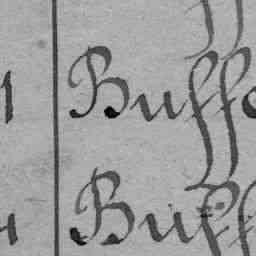 Buffe
Buff